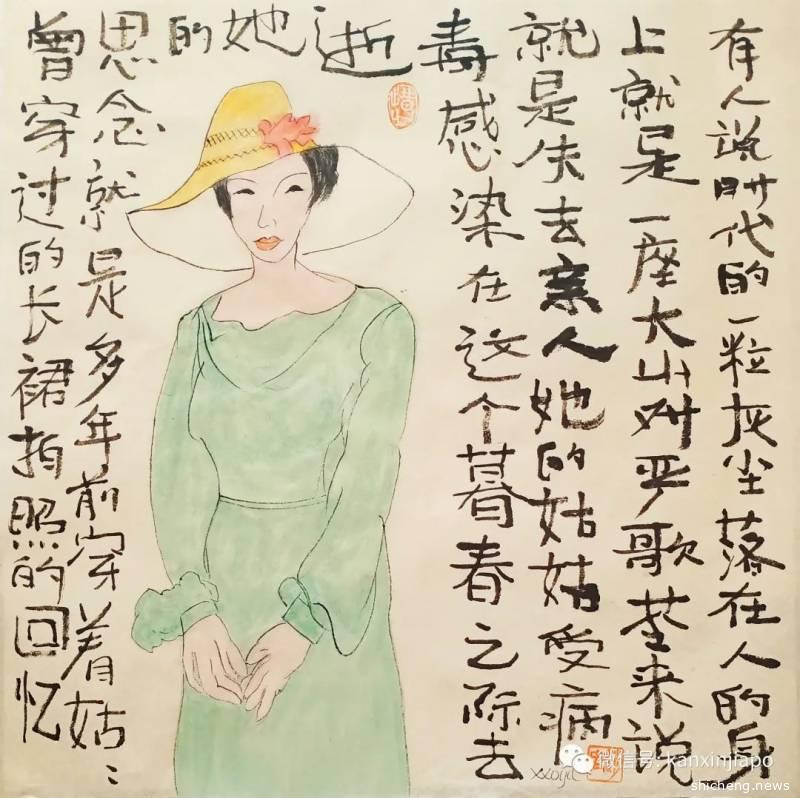 有人说时代的一粒灰尘落在人的身
上就是一座大山对严歌荃来说
就是失去亲人她的姑姑受病
毒感染在这个暮春之际去
逝
她
的
思念就是多年前穿着姑〻
曾穿过的长裙拍照的回忆
微信号: kanxinjiapo
shicheng.news